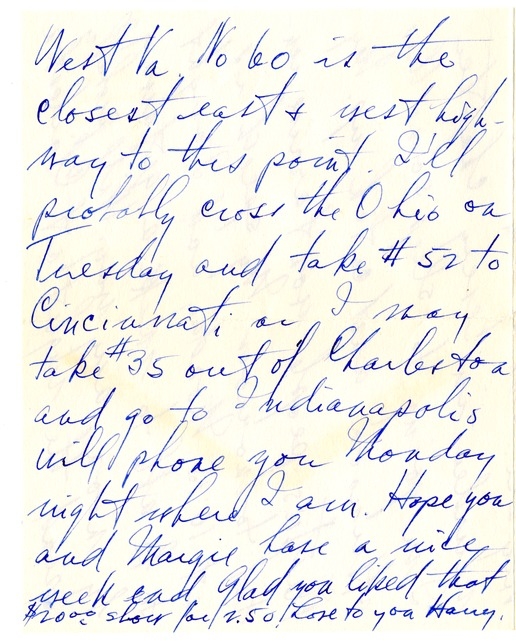 West Va. No 60 is the
closest east & west high-
way to this point. I'll
probably cross the Ohio on
Tuesday and take #52 to
Cincinnati or I may
take #35 out of Charleston
and go to Indianapolis
will phone you Monday
night where I am. Hope you
and Margie have a nice
week end. Glad you liked that
$20.00 show for 2.50. Love to you Harry.